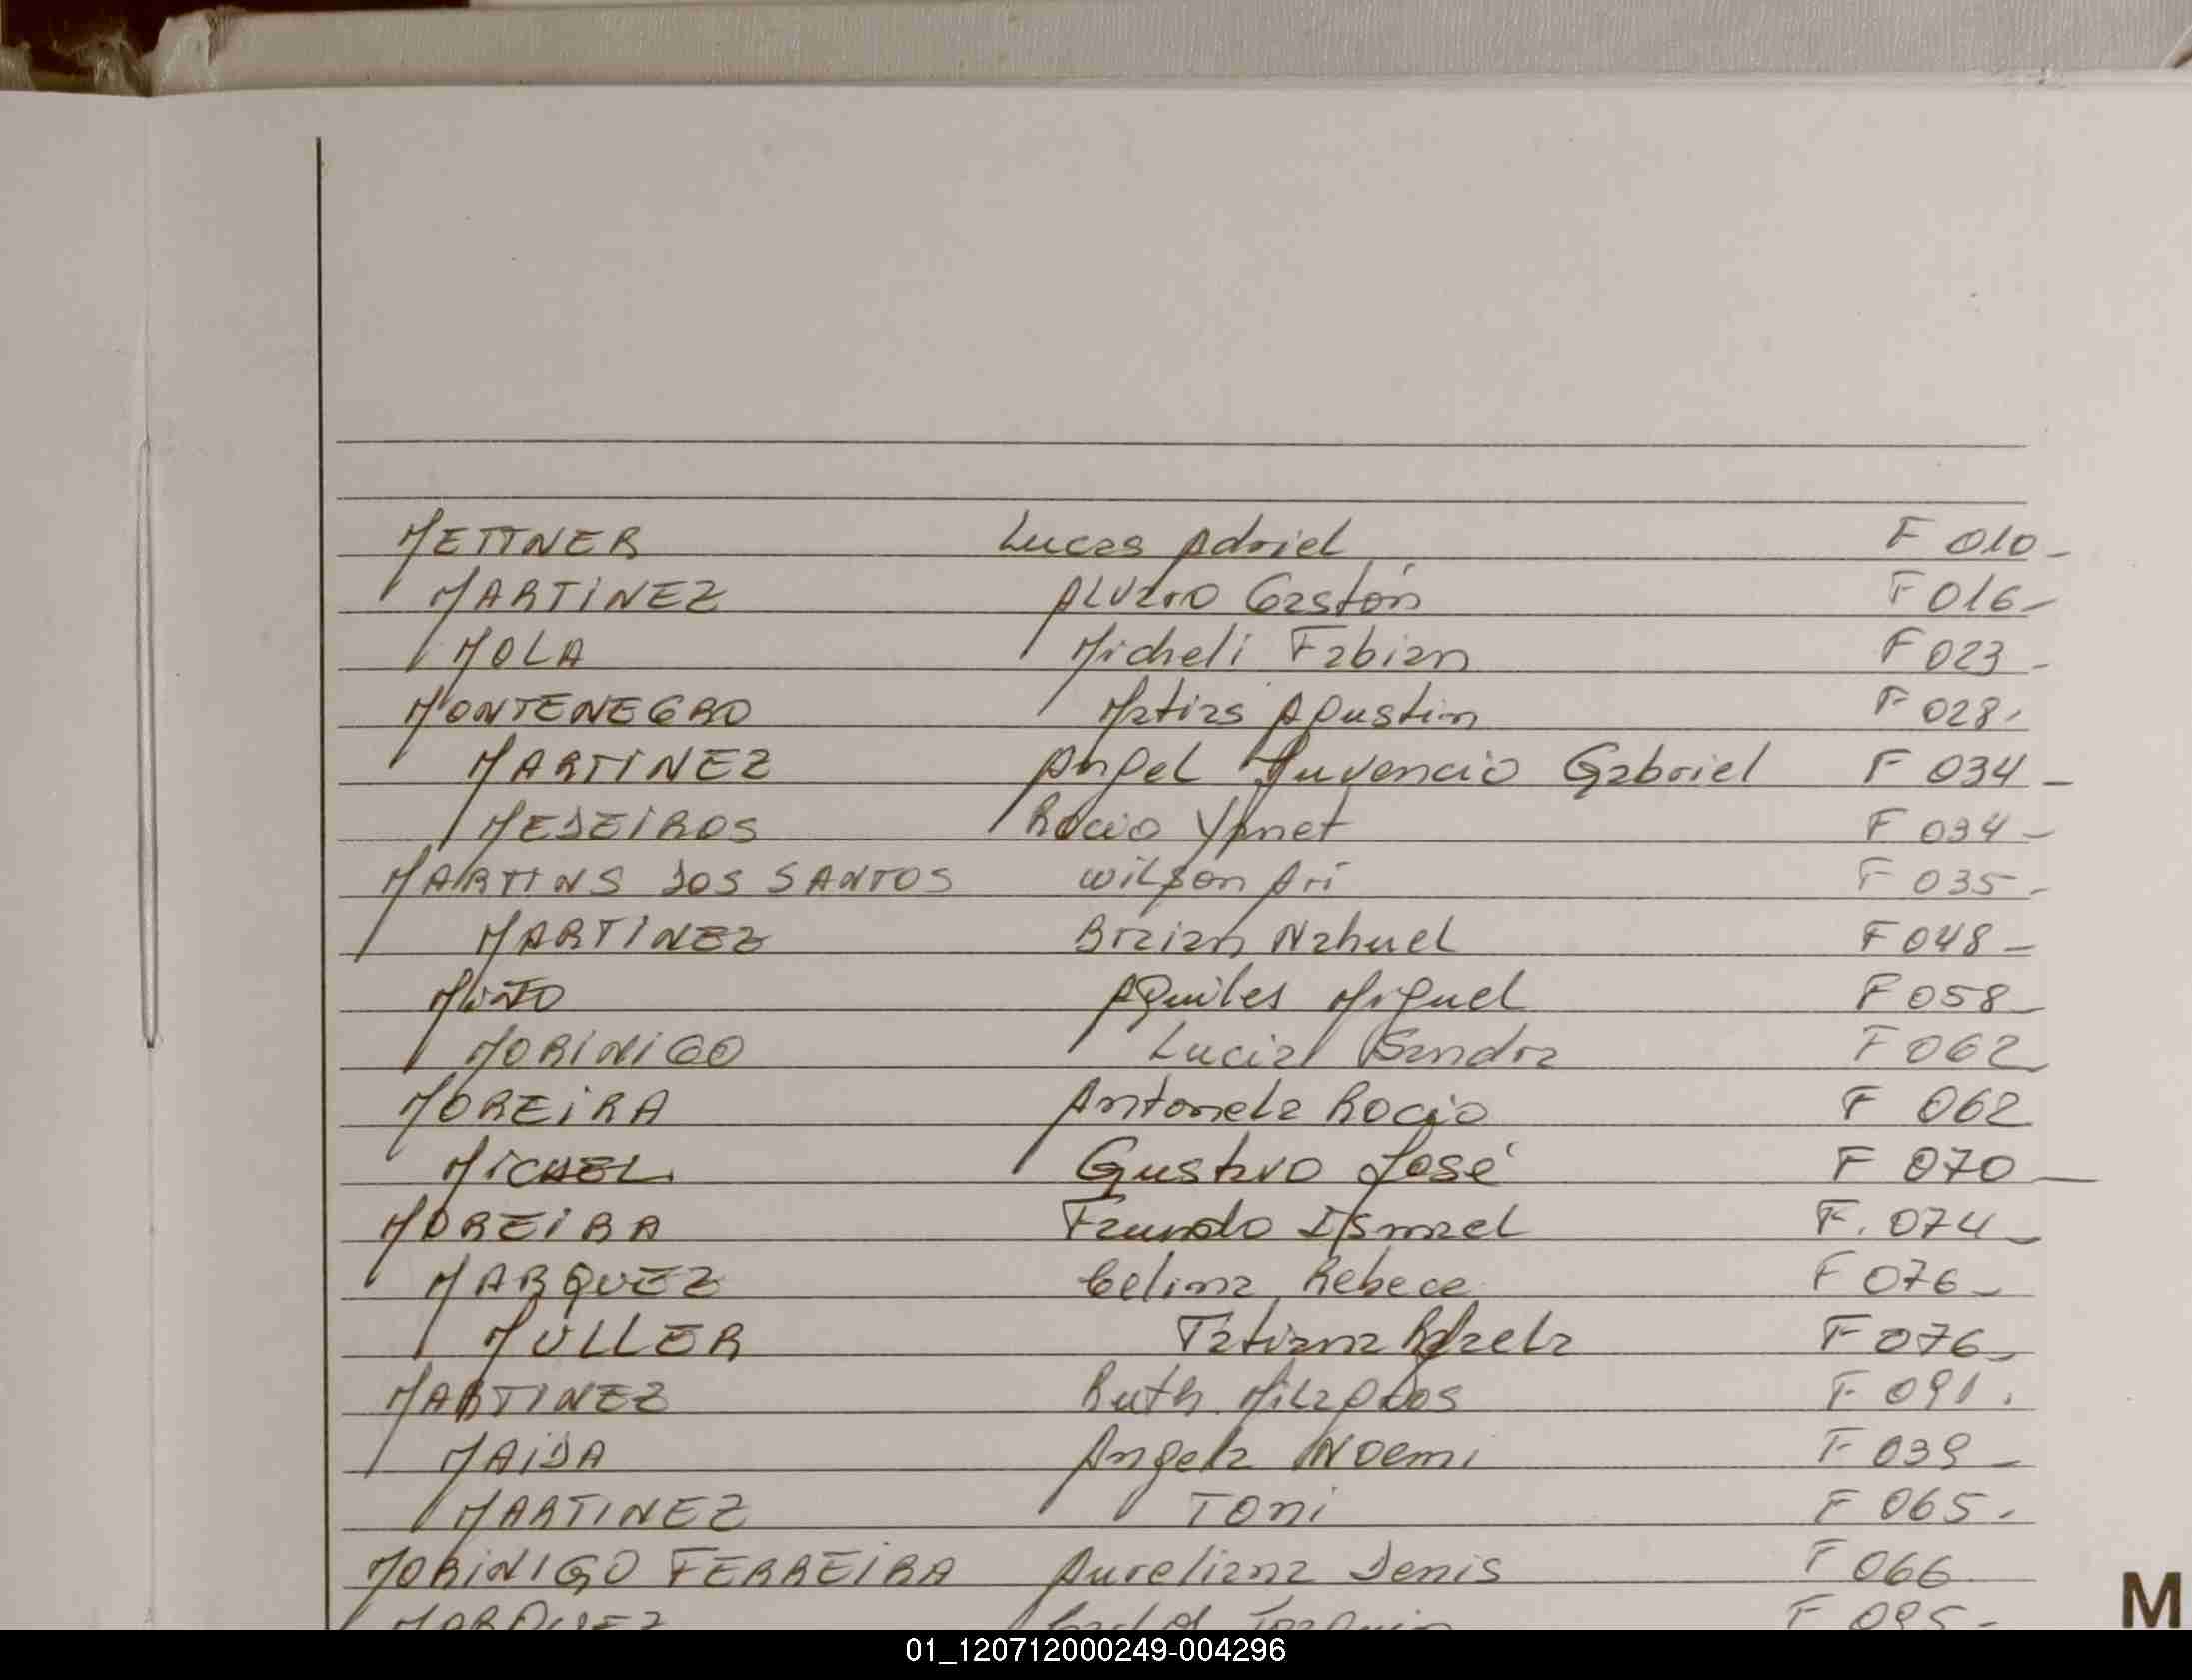 METTNER Lucas Adriel F 010-
MARTINEZ Alvaro Gastón F 016-
MOLA Micheli Fabian F 023-
MONTENEGRO Matias Agustin F 028-
MARTINEZ Angel Juvencio Gabriel F 034-
MEDEIROS Rocio Yanet F 034-
MARTINS DOS SANTOS Wilson Ari F 035-
MARTINEZ Braian Nahuel F 048-
MIÑO Aquiles Miguel F 058-
MORINIGO Lucia Sandra F 062
MOREIRA Antonela Rocio F 062
MICHEL Gustavo José F 070-
MOREIRA Facundo Ismael F. 074-
MARQUEZ Celina Rebeca F 076-
MULLER Tatiana F 076-
MARTINEZ Ruth Milagros F 091.
MAIDA Angela Noemi F 039-
MARTINEZ Toni F 065-
MORINIGO FERREIRA Aureliana Denis F 066
MARQUEZ F 095-
M
01_120712000249-004296